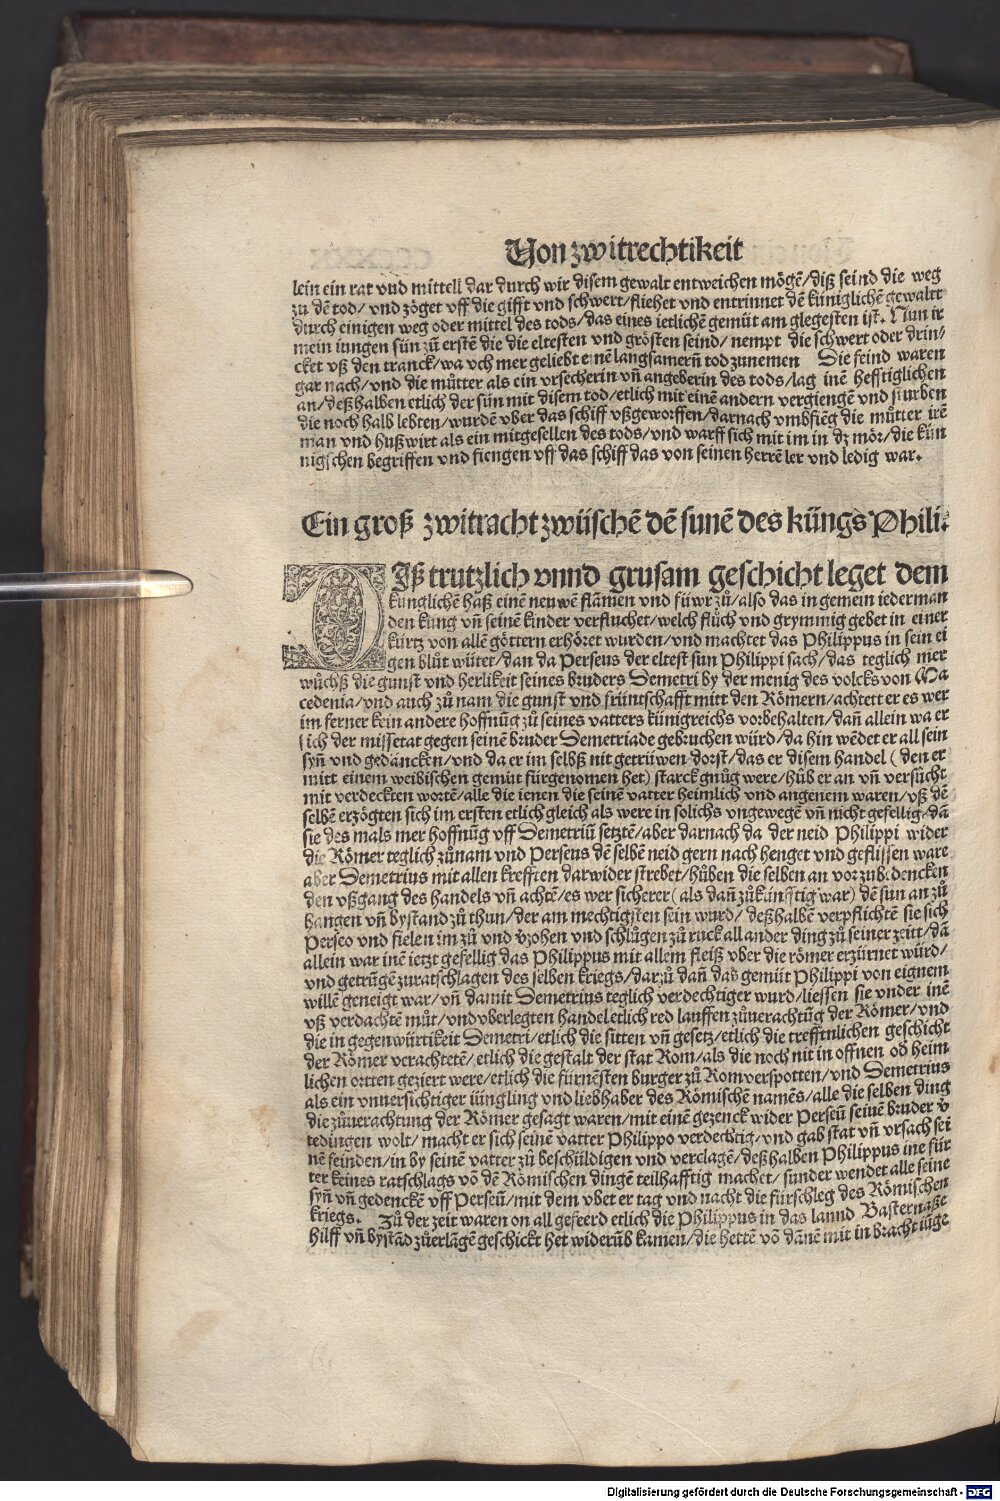 Von zwitrechtikeit
lein ein rat vnd mittell dar durch wir disem gewalt entweichen mögẽ/diß seind die weg
zu dẽ tod/ vnd zöget vff die gifft vnd schwert/fliehet vnd entrinnet dẽ küniglichẽ gewaltt
durch einigen weg oder mittel des tods/das eines ietlichẽ gemüt am glegesten ist. Nun ir
mein iungen sün zů erstẽ die die eltesten vnd grösten seind/ nempt die schwert oder drin⸗
cket vß den tranck/wa vch mer geliebt einẽ langsamerñ tod zunemen Sie feind waren
gar nach/vnd die můtter als ein vrsecherin vñ angeberin des tods/lag inẽ hefftiglichen
an/deßhalben etlich der sün mit disem tod/etlich mit einẽ andern vergiengẽ vnd sturben
die noch halb lebten/wurdẽ vber das schiff vßgeworffen/darnach vmbfiẽg die můtter irẽ
man vnd hußwirt als ein mitgesellen des tods/vnd warff sich mit im in dz mör/die kün
nigschen begriffen vnd fiengen vff das schiff das von seinen herrẽ ler vnd ledig war.
Ein groß zwitracht zwüschẽ dẽ sunẽ des küngs Phili.
DIß trutzlich vnnd grusam geschicht leget dem
kunglichẽ haß einẽ neuwẽ flãmen vnd füwr zů/also das in gemein iederman
den kung vñ seinẽ kinder verfluchet/welch flůch vnd grymmig gebet in einer
kürtz von allẽ göttern erhöret wurden/vnd machtet das Philippus in sein ei
gen blůt wüter/dan da Perseus der eltest sun Philippi sach/das teglich mer
wůchß die gunst vnd herlikeit seines bruders Demetri by der menig des volcks von Ma
cedenia/vnd auch zů nam die gunst vnd früntschafft mitt den Römern/achtett er es wer
im ferner kein andere hoffnũg zů seines vatters künigreichs vorbehalten/dañ allein wa er
sich der missetat gegen seinẽ bruder Demetriade gebruchen würd/da hin wẽdet er all sein
syñ vnd gedãncken/vnd da er im selbß nit getrüwen dorst/das er disem handel (den er
mitt einem weibischen gemüt fürgenomen het) starck gnůg were/hůb er an vñ versücht
mit verdecktẽn wortẽ/alle die ienen die seinẽ vatter heimlich vnd angenem waren/vß dẽ
selbẽ erzögten sich im ersten etlich gleich als were in solichs vngewegẽ vñ nicht gefellig/dã
sie des mals mer hoffnũg vff Demetriũ setztẽ/aber darnach da der neid Philippi wider
die Römer teglich zůnam vnd Perseus dẽ selbẽ neid gern nach henget vnd geflissen ware
aber Demetrius mit allen krefften darwider strebet/hůben die selben an vor zubedencken
den vßgang des handels vñ achtẽ/es wer sicherer (als dañ zůkünfftig war) dẽ sun an zů
hangen vñ bystand zů thun/der am mechtigsten sein wurd/ deßhalbẽ verpflichtẽ sie sich
Perseo vnd fielen im zů vnd vzohen vnd schlůgen zů ruck all ander ding zů seiner zeitt/dã
allein war inẽ ietzt gefellig das Philippus mit allem fleiß vber die römer erzürnet würd/
vnd getrũgẽ zuratschlagen des selben kriegs/darzů dañ das gemüt Philippi von eignem
willẽ geneigt war/vñ damit Demetrius teglich verdechtiger wurd/liessen sie vnder inẽ
vß verdachtẽ můt/vnd vberlegten handel etlich red lauffen zůuerachtũg der Römer/vnd
die in gegenwürtikeit Demetri/etlich die sitten vñ gesetz/etlich die trefftnlichen geschicht
der Römer verachtetẽ/etlich die gestalt der stat Rom/als die noch nit in offnen od heim
lichen ortten geziert were/etlich die fürnẽsten burger zů Rom verspotten/vnd Demetrius
als ein vnuersichtiger iüngling vnd liebhaber des Römischẽ namẽs/alle die selben ding
die zůuerachtung der Römer gesagt waren/mit einẽ gezenck wider Perseũ seinẽ bruder v
tedingen wolt/ macht er sich seinẽ vatter Philippo verdechtig/vnd gab stat vñ vrsach sei
nẽ feinden/in by seinẽ vatter zů beschüldigen vnd verclagẽ/deßhalben Philippus ine für
ter keines ratschlags võ dẽ Römischen dingẽ teilhafftig machet/ sunder wendet alle seine
syñ vñ gedenckẽ vff Perseũ/mit dem vbet er tag vnd nacht die fürschleg des Römischen
kriegs. Zů der zeit waren on all gefeerd etlich die Philippus in das lannd Basternaße
hilff vñ bystãd zůerlãgẽ geschickt het widerũb kamen/die hettẽ võ dãnẽ mit in bracht iũge
Digitalisierung gefördert durch die Deutsche Forschungsgemeinschaft - DFG